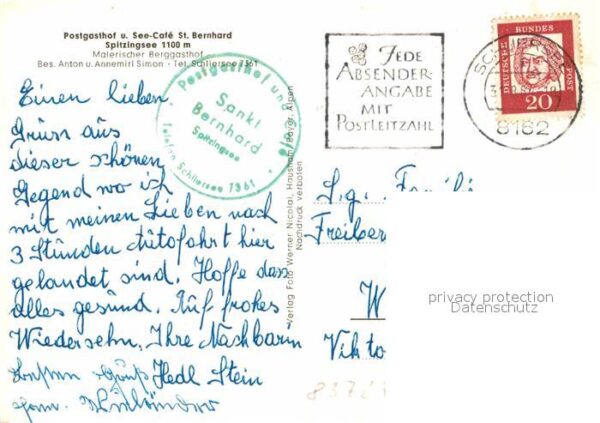 Postgasthof u. See-Café St. Bernhard
Spitzingsee 1100 m
Malerischer Berggasthof
Bes. Anton u. Annemirl Simon · Tel. Schliersee 7361
Postgasthof und
Sankt
Bernhard
Spitzingsee
Telefon Schliersee 7361
JEDE
ABSENDER-
ANGABE
MIT
POSTLEITZAHL
DEUTSCHE BUNDESPOST
20
8162
Einen lieben
Gruss aus
dieser schönen
Gegend wo ich
mit meinen Lieben nach
3 Stunden Autofahrt hier
gelandet sind. Hoffe dass
alles gesund. Auf frohes
Wiedersehn, Ihre Nachbarin
Hedl Stein
Verlag Foto Werner Nicolai, Hausham, Bayer. Alpen
Nachdruck verboten
Freiber
W
Vikto
privacy protection
Datenschutz